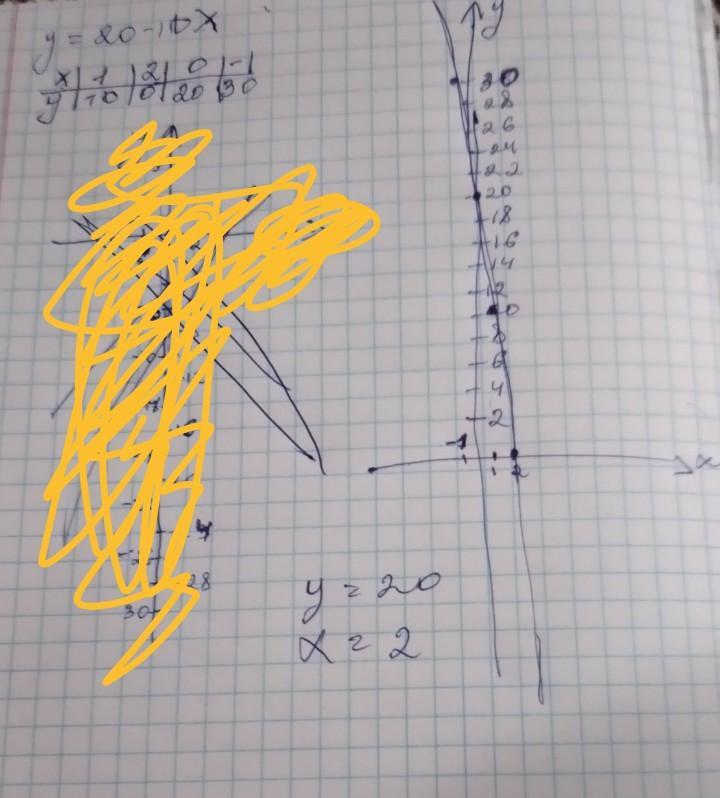 y = 20-10x
x | 1 | 2 | 0 | -1
y | 10 | 0 | 20 | 30
y
30
28
26
24
22
20
18
16
14
12
10
8
6
4
2
-1 1 2 x
28
30
y = 20
x = 2